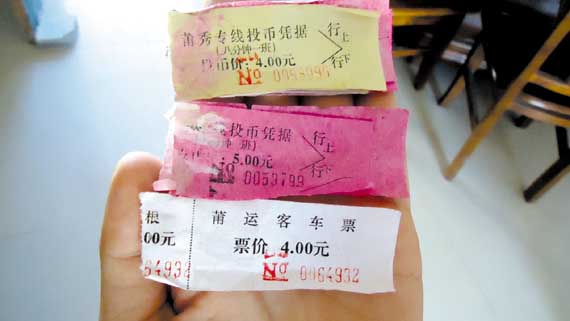 莆秀专线投币凭据
(八分钟一班)
投币价:4.00元
上行
下行
No
投币凭据
钟一班)
:5.00元
上行
下行
No 0053799
根
.00元
64932
莆运客车票
票价 4.00元
No 0064932